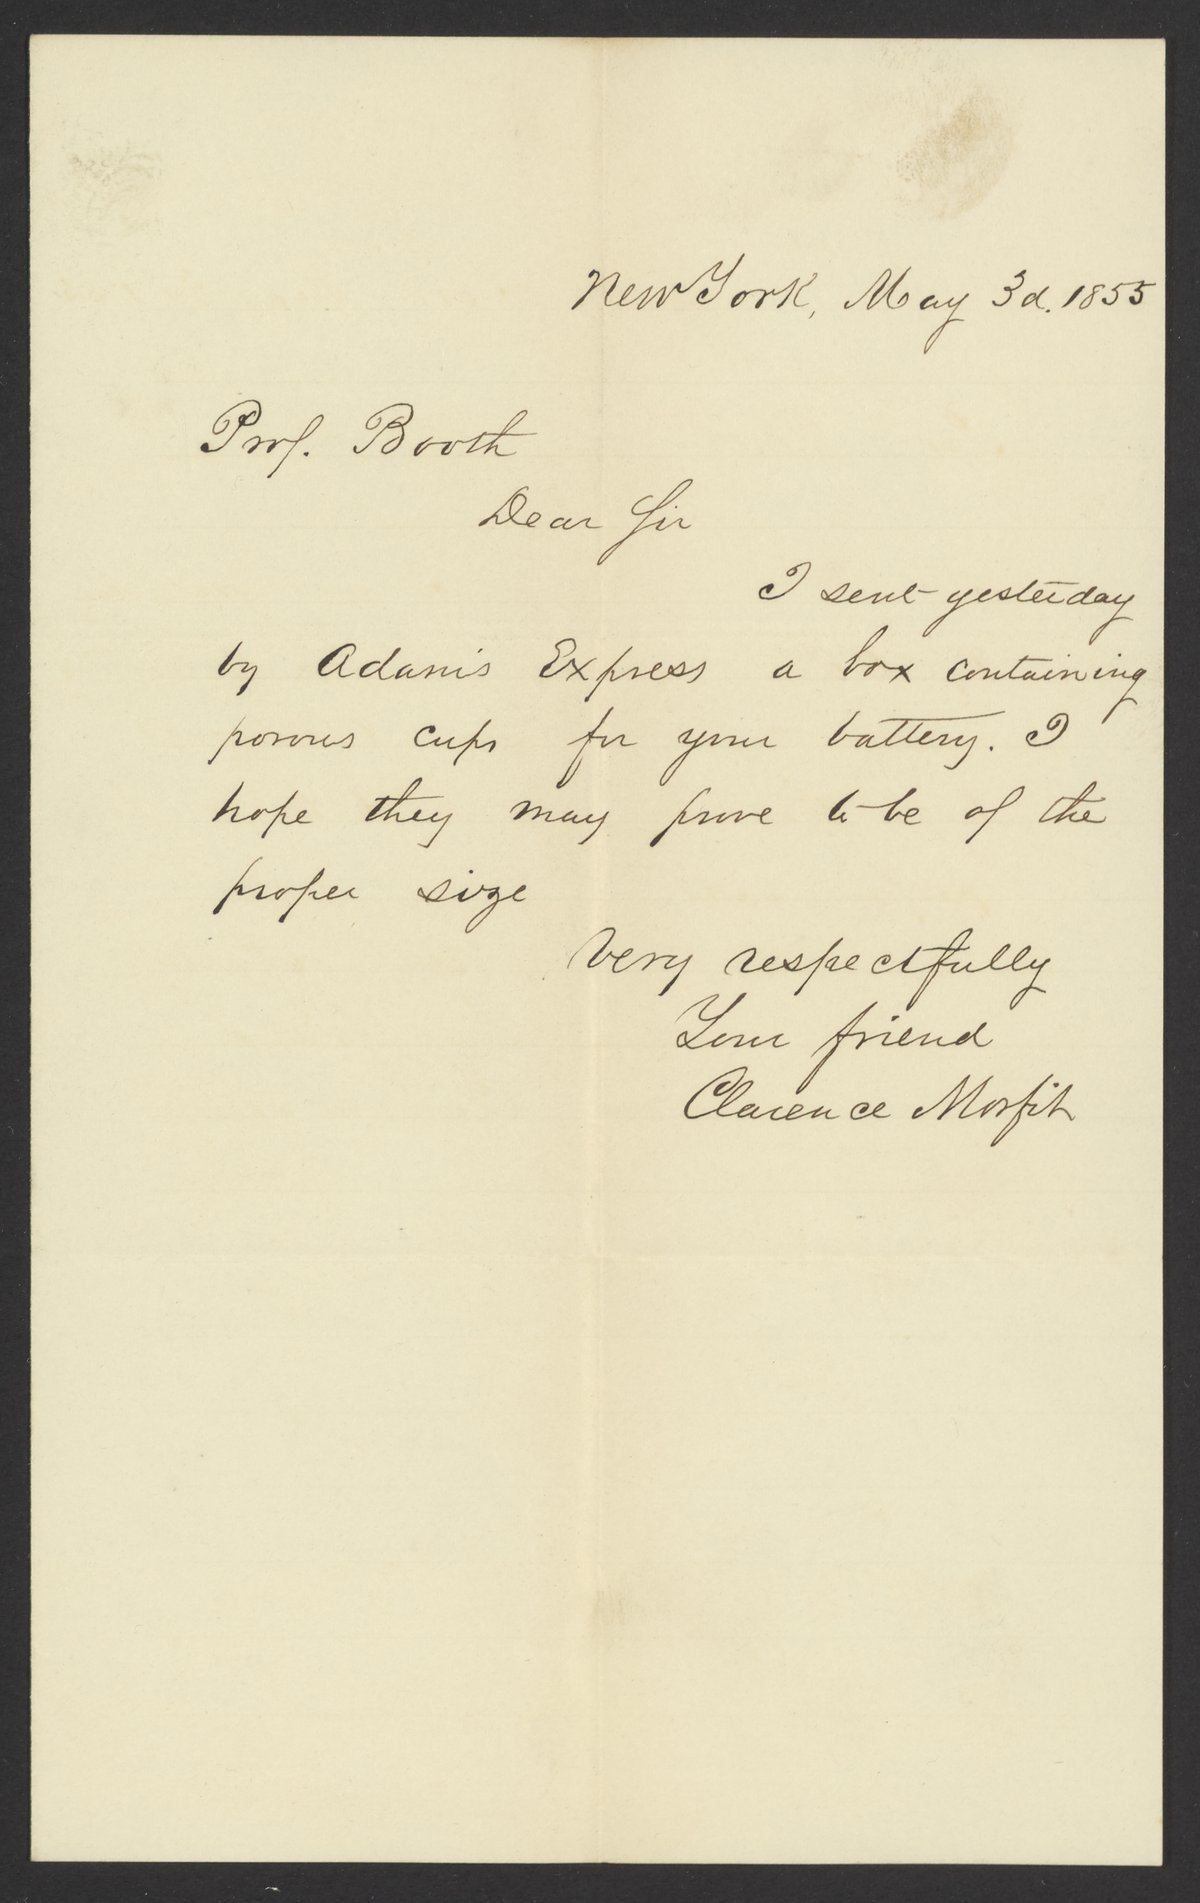 New York, May 3d. 1855
Prof. Booth
Dear Sir
I sent yesterday
by Adam's Express a box containing
porous cups for your battery. I
hope they may prove to be of the
proper size
Very respectfully
Your friend
Clarence Morfit